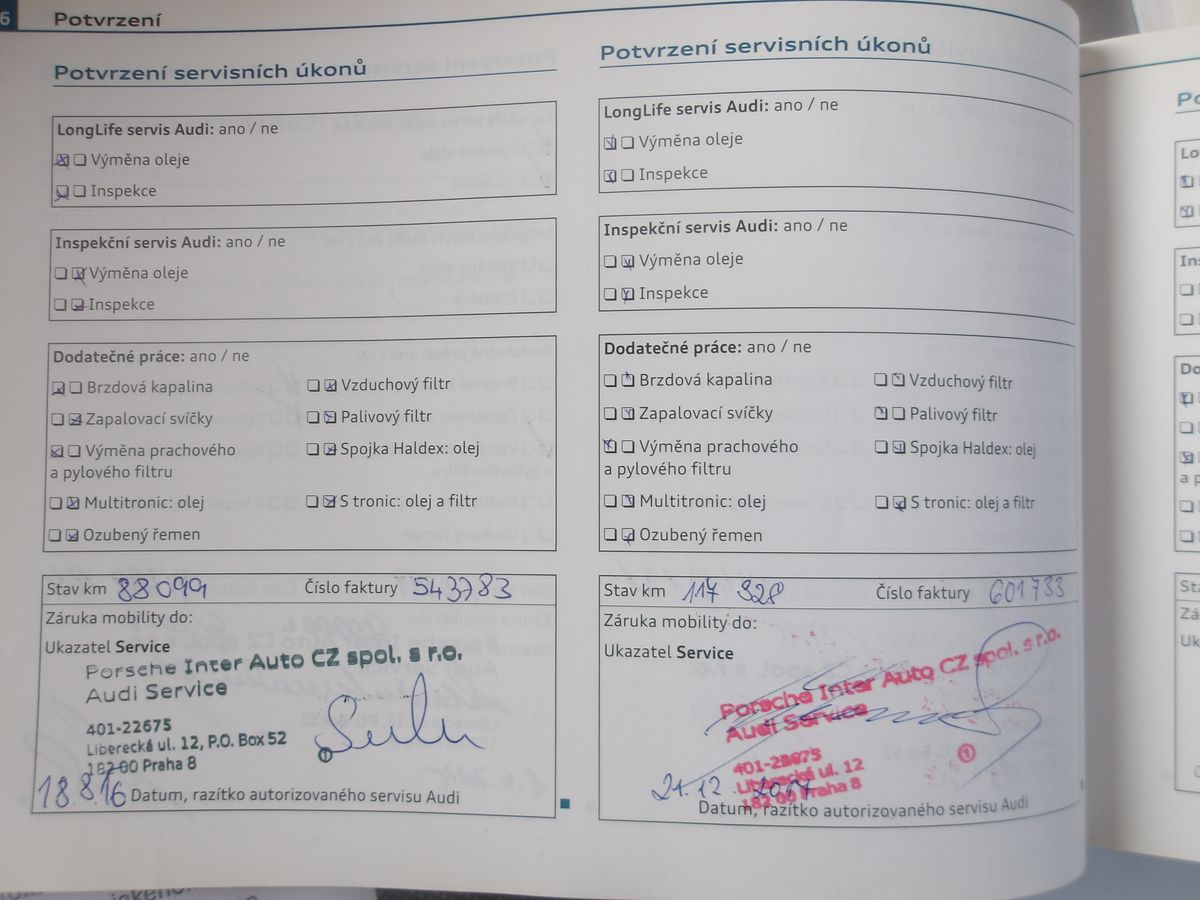 6 Potvrzení
Potvrzení servisních úkonů
LongLife servis Audi: ano / ne
Výměna oleje
Inspekce
Inspekční servis Audi: ano / ne
Výměna oleje
Inspekce
Dodatečné práce: ano / ne
Brzdová kapalina
Vzduchový filtr
Zapalovací svíčky
Palivový filtr
Výměna prachového
a pylového filtru
Spojka Haldex: olej
Multitronic: olej
S tronic: olej a filtr
Ozubený řemen
Stav km 88099 Číslo faktury 543783
Záruka mobility do:
Ukazatel Service
Porsche Inter Auto CZ spol. s r.o.
Audi Service
401-22675
Liberecká ul. 12, P.O. Box 52
182 00 Praha 8
1
18.8.16 Datum, razítko autorizovaného servisu Audi
Potvrzení servisních úkonů
LongLife servis Audi: ano / ne
Výměna oleje
Inspekce
Inspekční servis Audi: ano / ne
Výměna oleje
Inspekce
Dodatečné práce: ano / ne
Brzdová kapalina
Vzduchový filtr
Zapalovací svíčky
Palivový filtr
Výměna prachového
a pylového filtru
Spojka Haldex: olej
Multitronic: olej
S tronic: olej a filtr
Ozubený řemen
Stav km 117 328 Číslo faktury 601733
Záruka mobility do:
Ukazatel Service
Porsche Inter Auto CZ spol. s r.o.
Audi Service
401-22675
Liberecká ul. 12
182 00 Praha 8
1
21.12.2017
Datum, razítko autorizovaného servisu Audi